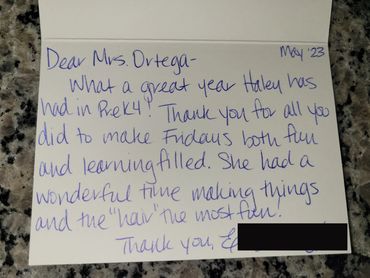 Dear Mrs. Ortega- May '23
What a great year Haley has
had in PreK4! Thank you for all you
did to make Fridays both fun
and learning filled. She had a
wonderful time making things
and the "hair" the most fun!
Thank you,